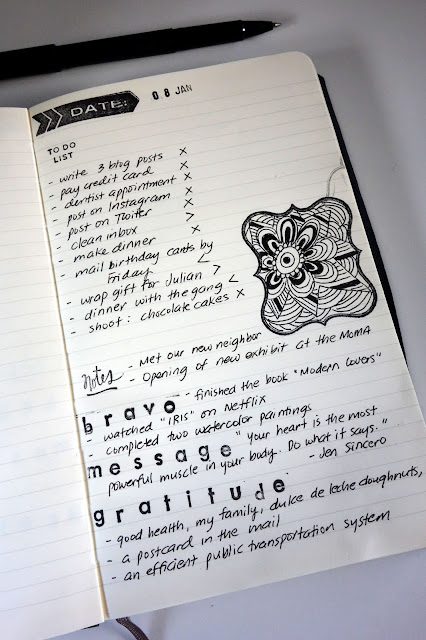 DATE: 08 JAN
TO DO
LIST
- write 3 blog posts x
- pay credit card x
- dentist appointment x
- post on Instagram x
- post on Twitter x
- clean inbox >
- make dinner x
- mail birthday cards by
Friday <
- wrap gift for Julian >
- dinner with the gang <
- shoot: chocolate cakes x
Notes - Met our new neighbor
- Opening of new exhibit at the MoMA
brave - finished the book "Modern Lovers"
- watched "IRIS" on Netflix
- completed two watercolor paintings
message "your heart is the most
powerful muscle in your body. Do what it says."
- Jen Sincero
gratitude
- good health, my family, dulce de leche doughnuts,
- a postcard in the mail
- an efficient public transportation system